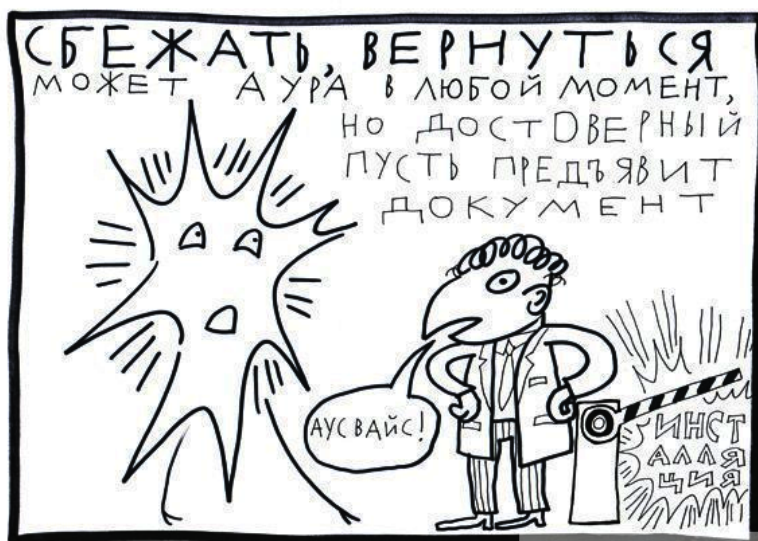 СБЕЖАТЬ, ВЕРНУТЬСЯ
МОЖЕТ АУРА В ЛЮБОЙ МОМЕНТ,
НО ДОСТОВЕРНЫЙ
ПУСТЬ ПРЕДЪЯВИТ
ДОКУМЕНТ
АУСВАЙС!
ИНСТ
АЛЛЯ
ЦИЯ